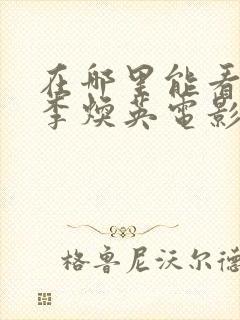 在那里能看
李焕英电影
格鲁尼沃尔德